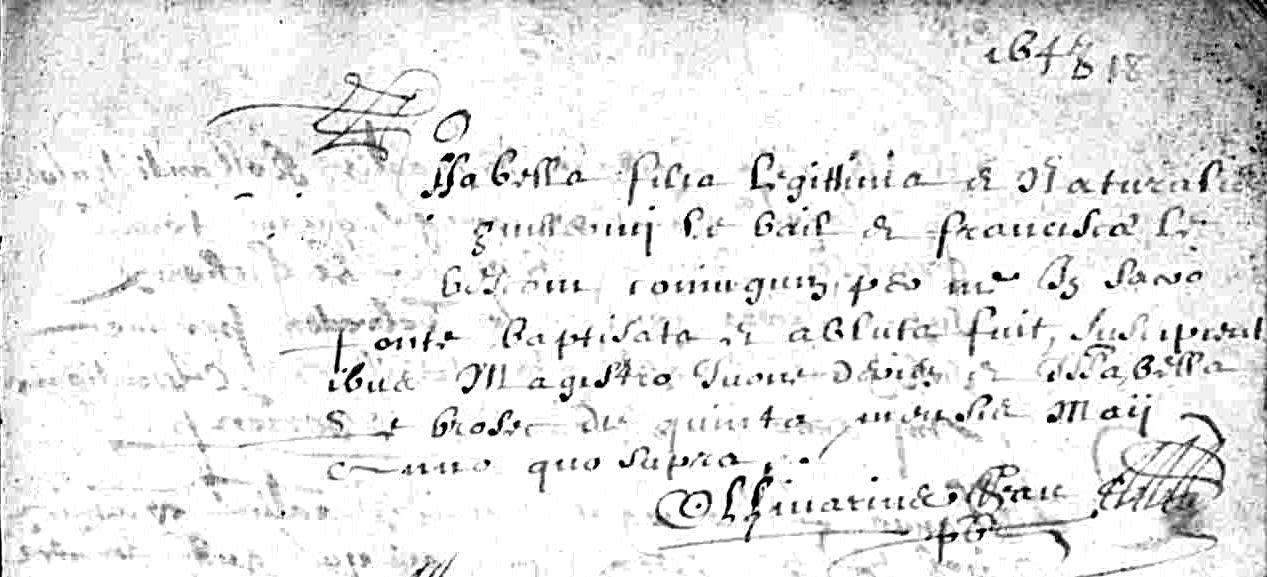 1648 18
Isabella filia legittima & Naturalis
guillermi le bail & francisce le
coniugum per me In sacro
fonte baptisata & abluta fuit, suscipient
ibus Magistro Iuone & Isabella
die quinta mensis Maij
Anno quo supra
pbr